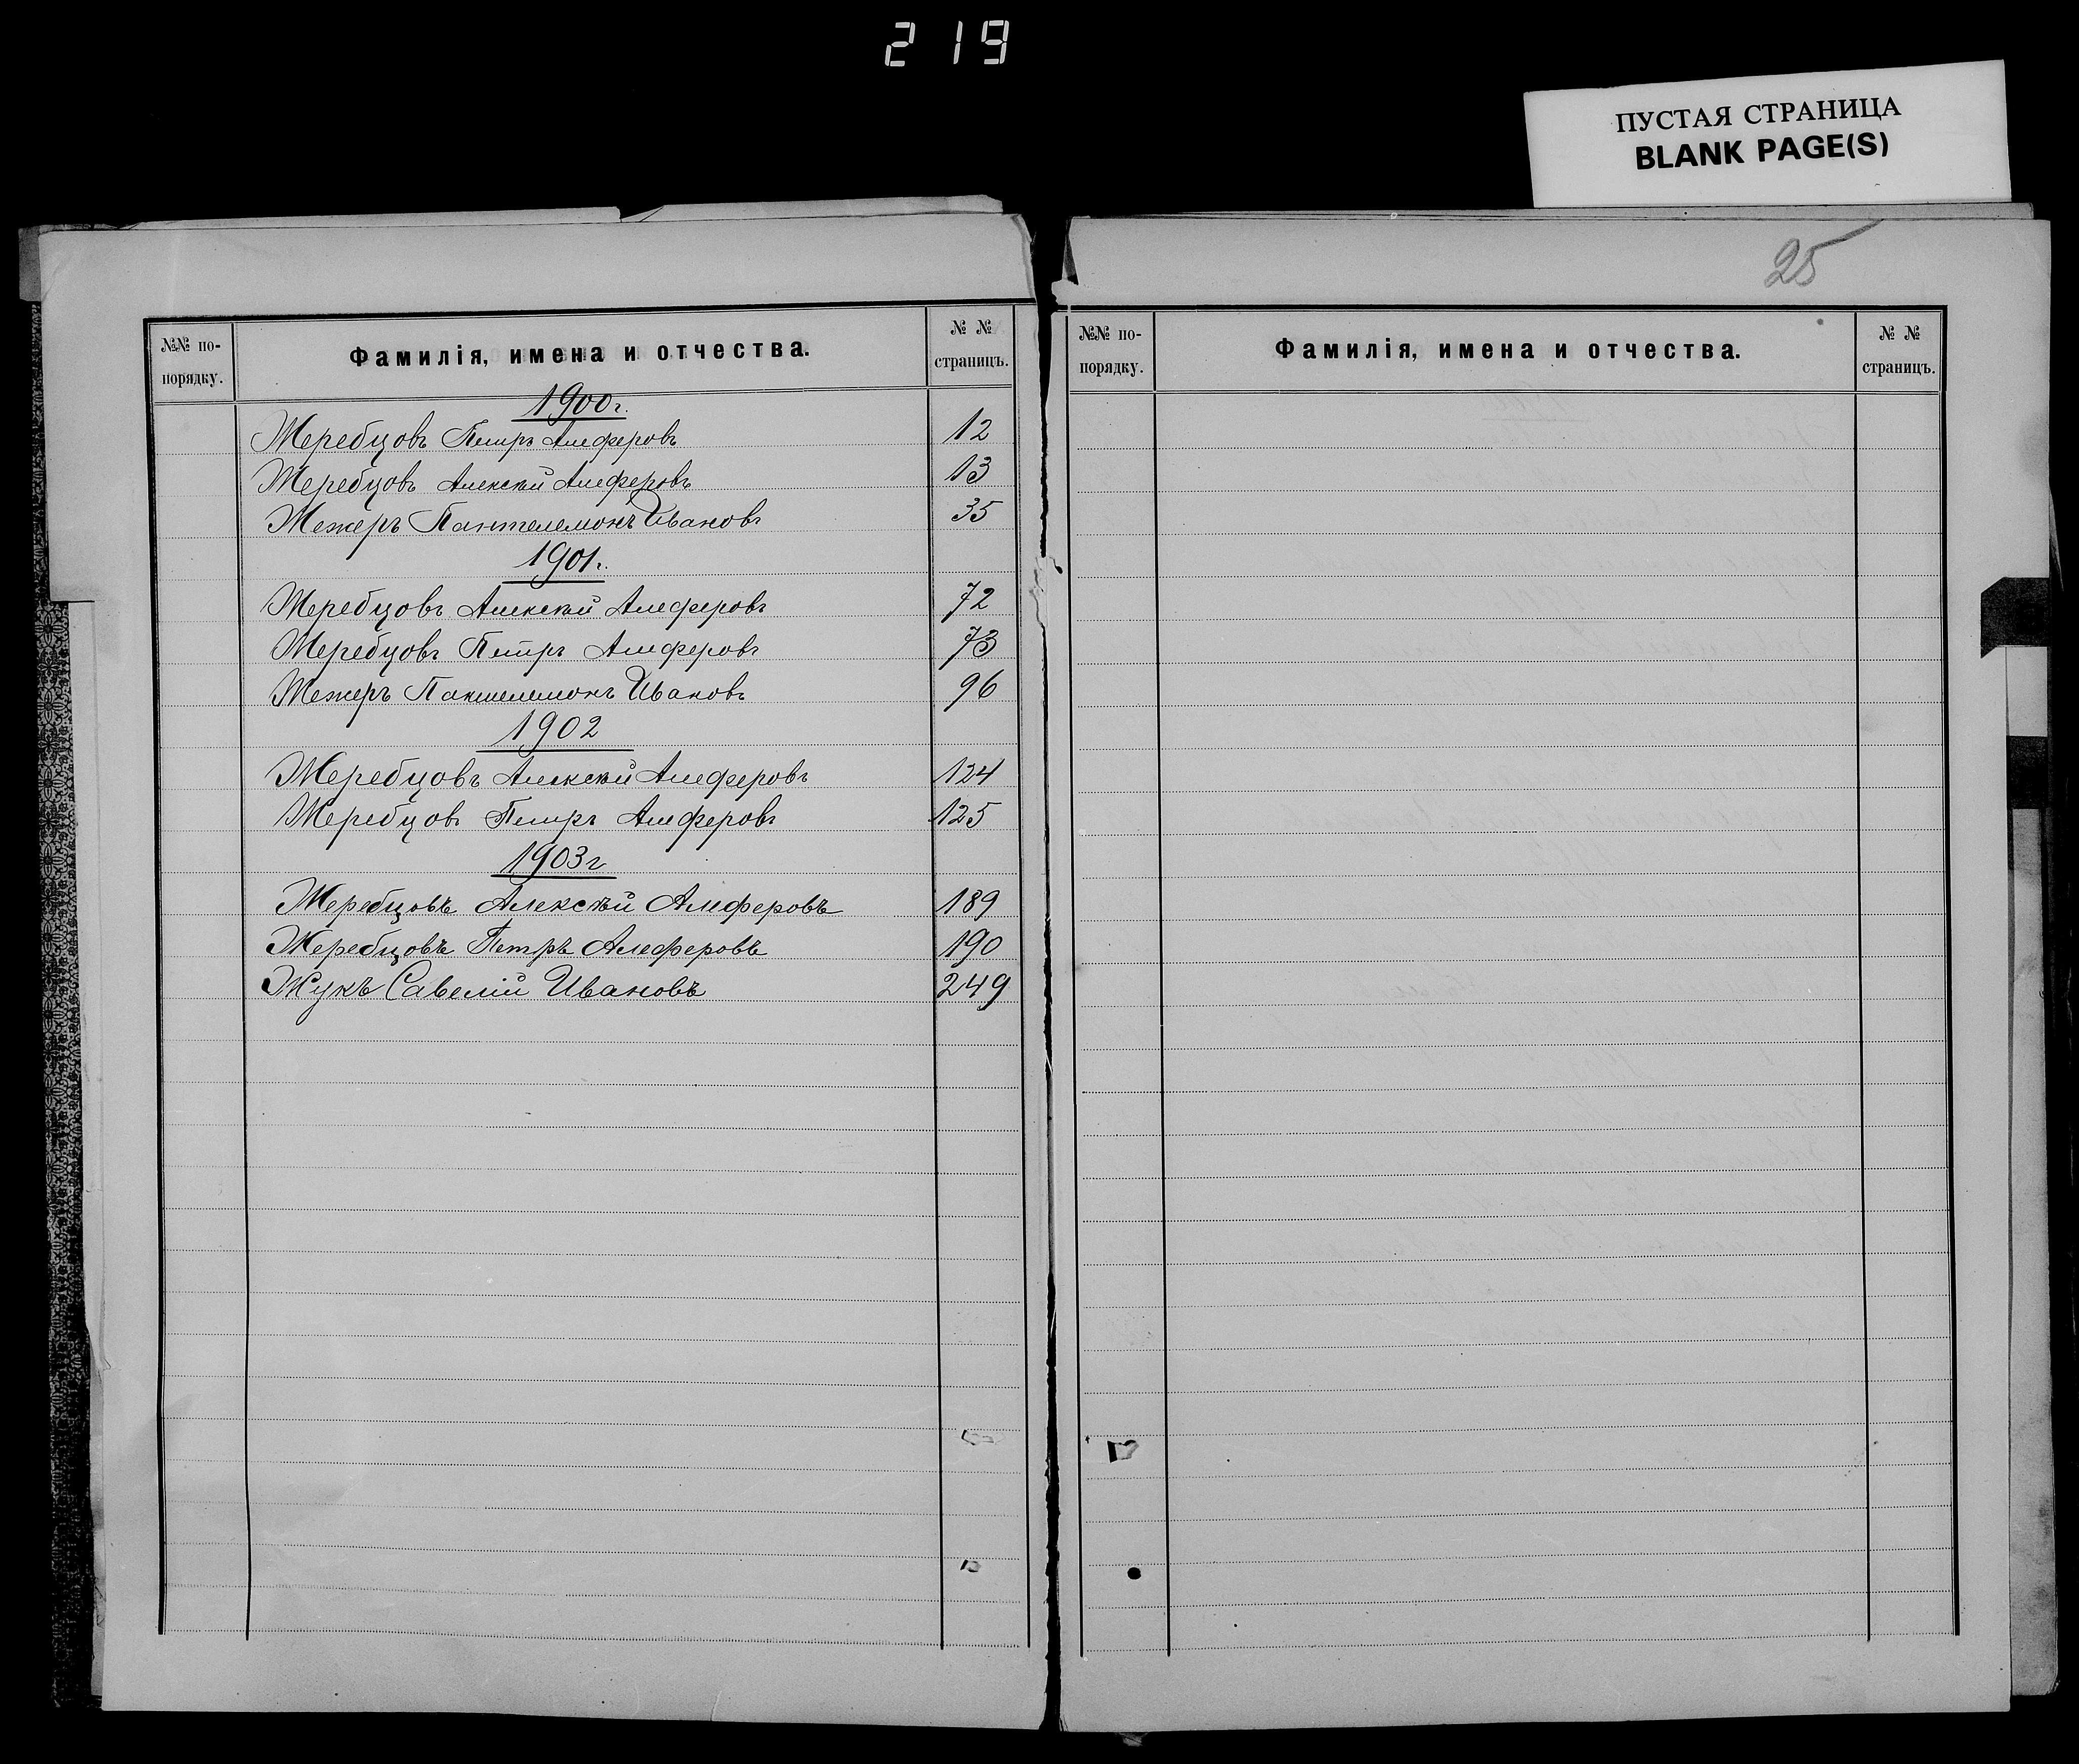 219
ПУСТАЯ СТРАНИЦА
BLANK PAGE(S)
№№ по-порядку. Фамилія, имена и отчества. № № страницъ.
1900 г.
Жеребцовъ Петръ Алферовъ 12
Жеребцовъ Алексѣй Алферовъ 13
Межеръ Пантелемонъ Ивановъ 35
1901 г.
Жеребцовъ Алексѣй Алферовъ 72
Жеребцовъ Петръ Алферовъ 73
Межеръ Пантелемонъ Ивановъ 96
1902
Жеребцовъ Алексѣй Алферовъ 124
Жеребцовъ Петръ Алферовъ 125
1903 г
Жеребцовъ Алексѣй Алферовъ 189
Жеребцовъ Петръ Алеферовъ 190
Жукъ Савелій Ивановъ 249
25
№№ по-порядку. Фамилія, имена и отчества. № № страницъ.